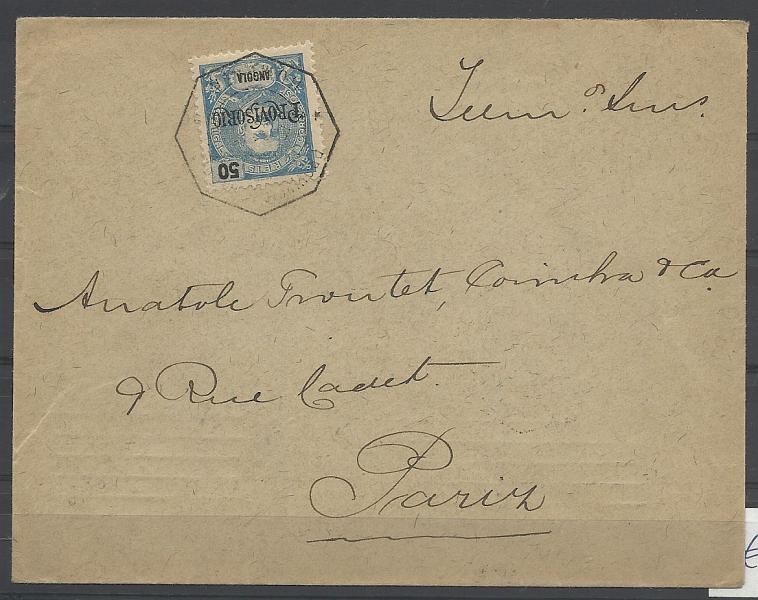 ANGOLA
PROVISORIO
50
Anatole Troutet, Coimbra & Ca
9 Rue Cadet.
Pariz